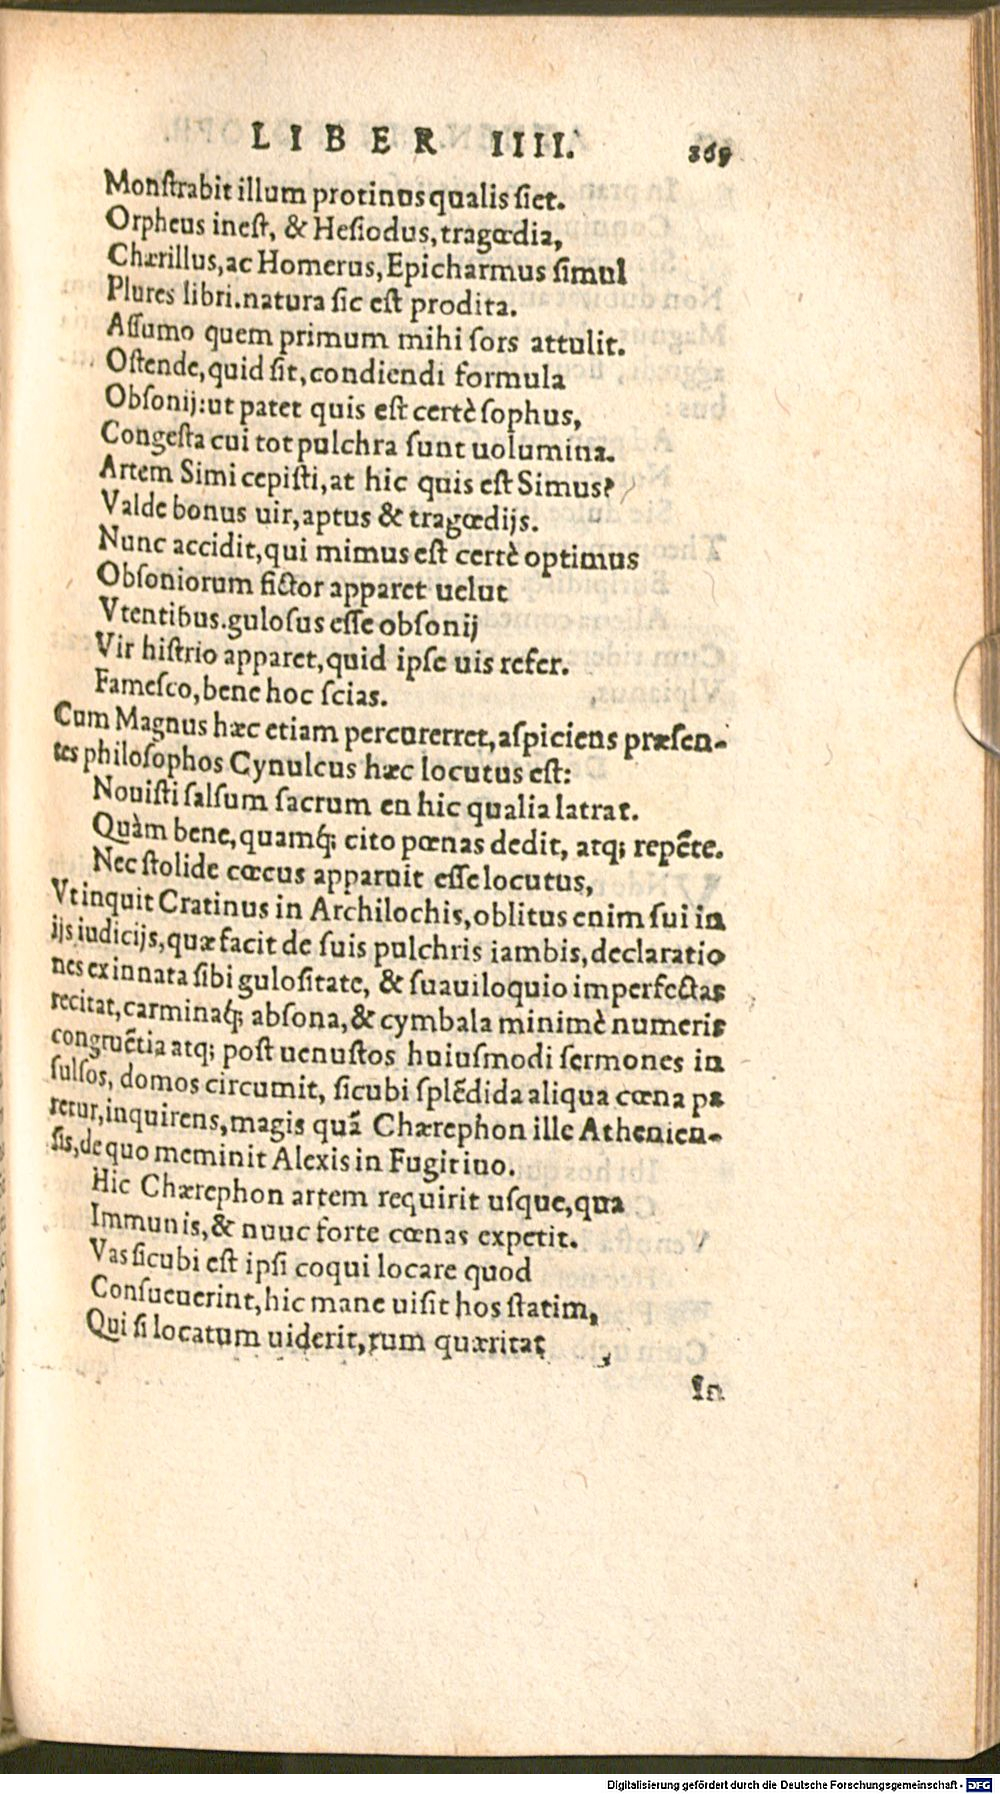 LIBER IIII. 369
Monſtrabit illum protinus qualis ſiet.
Orpheus ineſt, & Heſiodus, tragœdia,
Chærillus, ac Homerus, Epicharmus ſimul
Plures libri. natura ſic eſt prodita.
Aſſumo quem primum mihi ſors attulit.
Oſtende, quid ſit, condiendi formula
Obſonij: ut patet quis eſt certè ſophus,
Congeſta cui tot pulchra ſunt uolumina.
Artem Simi cepiſti, at hic quis eſt Simus?
Valde bonus uir, aptus & tragœdijs.
Nunc accidit, qui mimus eſt certè optimus
Obſoniorum fictor apparet uelut
Vtentibus. guloſus eſſe obſonij
Vir hiſtrio apparet, quid ipſe uis refer.
Fameſco, bene hoc ſcias.
Cum Magnus hæc etiam percurerret, aſpiciens præſen-
tes philoſophos Cynulcus hæc locutus eſt:
Nouiſti ſalſum ſacrum en hic qualia latrat.
Quàm bene, quamq́; cito pœnas dedit, atq; repẽte.
Nec ſtolide cœcus apparuit eſſe locutus,
Vt inquit Cratinus in Archilochis, oblitus enim ſui in
ijs iudicijs, quæ facit de ſuis pulchris iambis, declaratio
nes ex innata ſibi guloſitate, & ſuauiloquio imperfectas
recitat, carminaq́; abſona, & cymbala minimè numeris
congruẽtia atq; poſt uenuſtos huiuſmodi ſermones in
ſulſos, domos circumit, ſicubi ſplẽdida aliqua cœna pa
retur, inquirens, magis quã Chærephon ille Athenien-
ſis, de quo meminit Alexis in Fugitiuo.
Hic Chærephon artem requirit uſque, qua
Immunis, & nuuc forte cœnas expetit.
Vas ſicubi eſt ipſi coqui locare quod
Conſueuerint, hic mane uiſit hos ſtatim,
Qui ſi locatum uiderit, tum quæritat
In
Digitalisierung gefördert durch die Deutsche Forschungsgemeinschaft - DFG